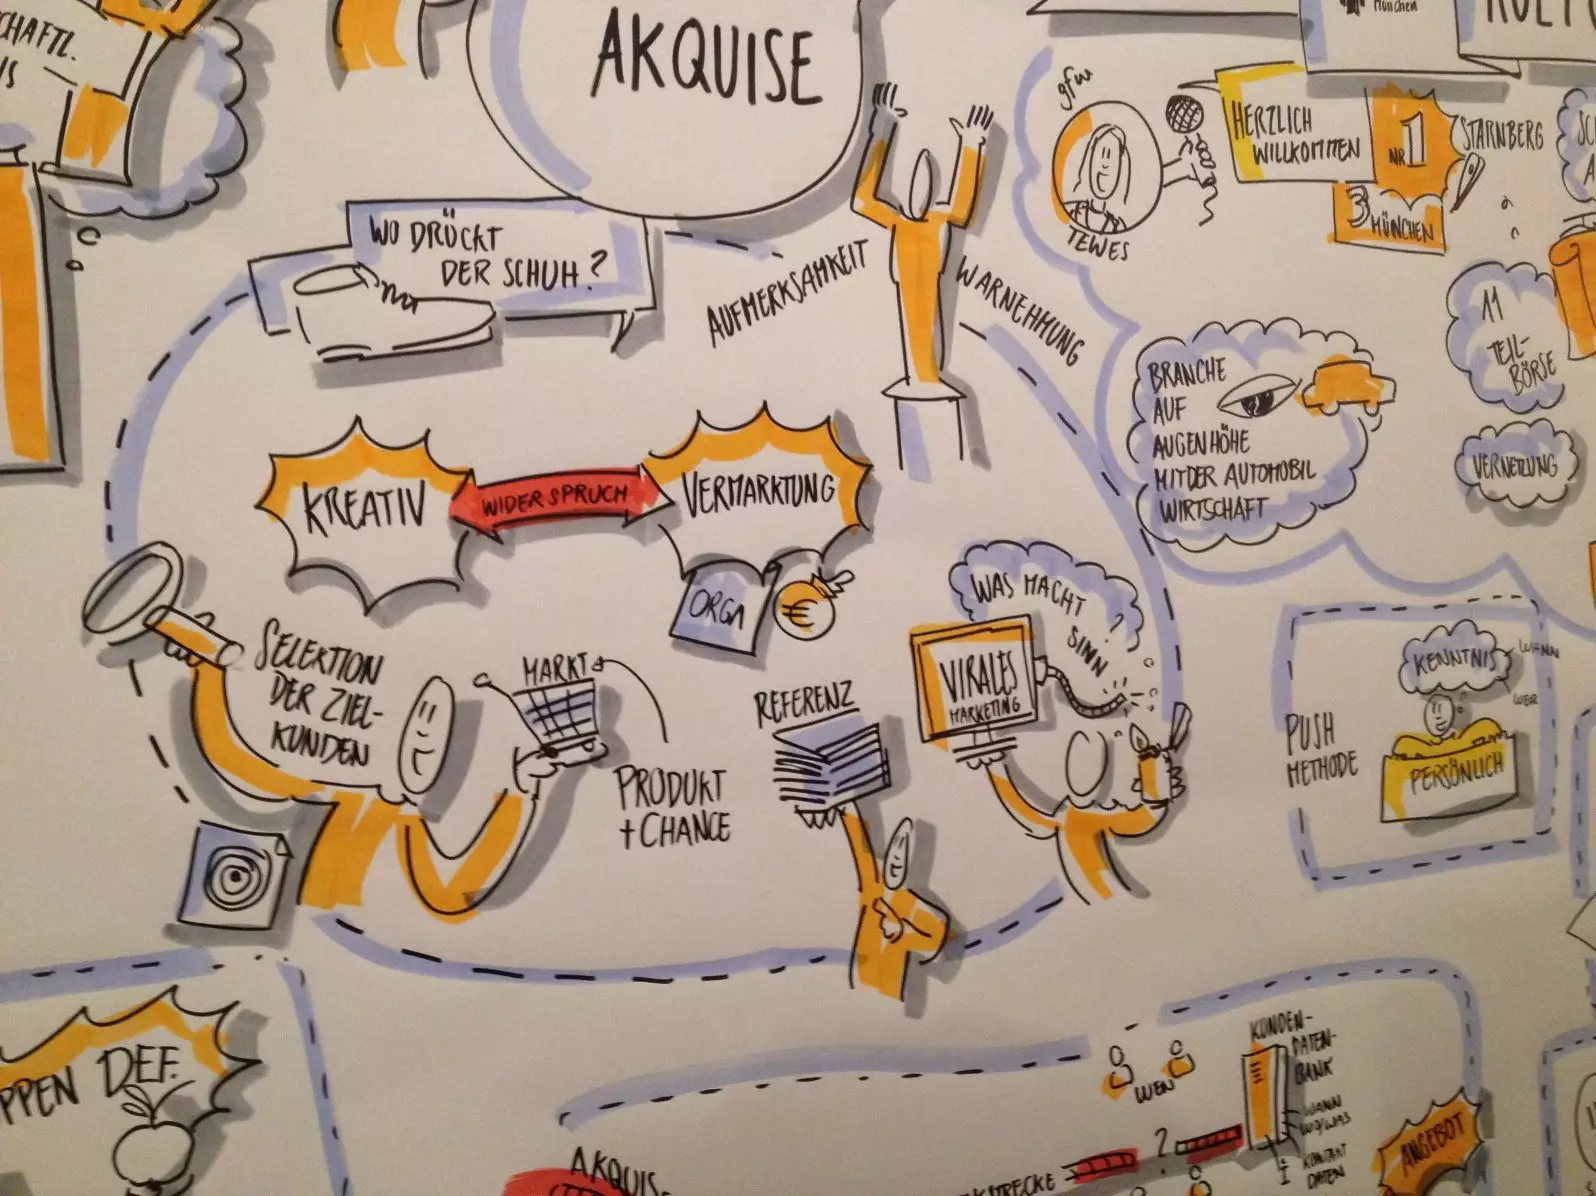 AKQUISE
WO DRÜCKT
DER SCHUH?
AUFMERKSAMKEIT
WARNEHMUNG
KREATIV
WIDERSPRUCH
VERMARKTUNG
ORGA
€
SELEKTION
DER ZIEL-
KUNDEN
MARKT
PRODUKT
+ CHANCE
REFERENZ
WAS MACHT
SINN
VIRALES
MARKETING
gfw
TEWES
HERZLICH
WILLKOMMEN
NR 1
STARNBERG
3 MÜNCHEN
München
BRANCHE
AUF
AUGENHÖHE
MIT DER AUTOMOBIL
WIRTSCHAFT
11
TEIL-
BÖRSE
VERNETZUNG
PUSH
METHODE
KENNTNIS
WANN
WER
PERSÖNLICH
CHAFTL.
PPEN DEF.
AKQUIS-
WEN
KUNDEN-
DATEN-
BANK
WANN
WO/WAS
KONTAKT
DATEN
?
KSTRECKE
ANGEBOT